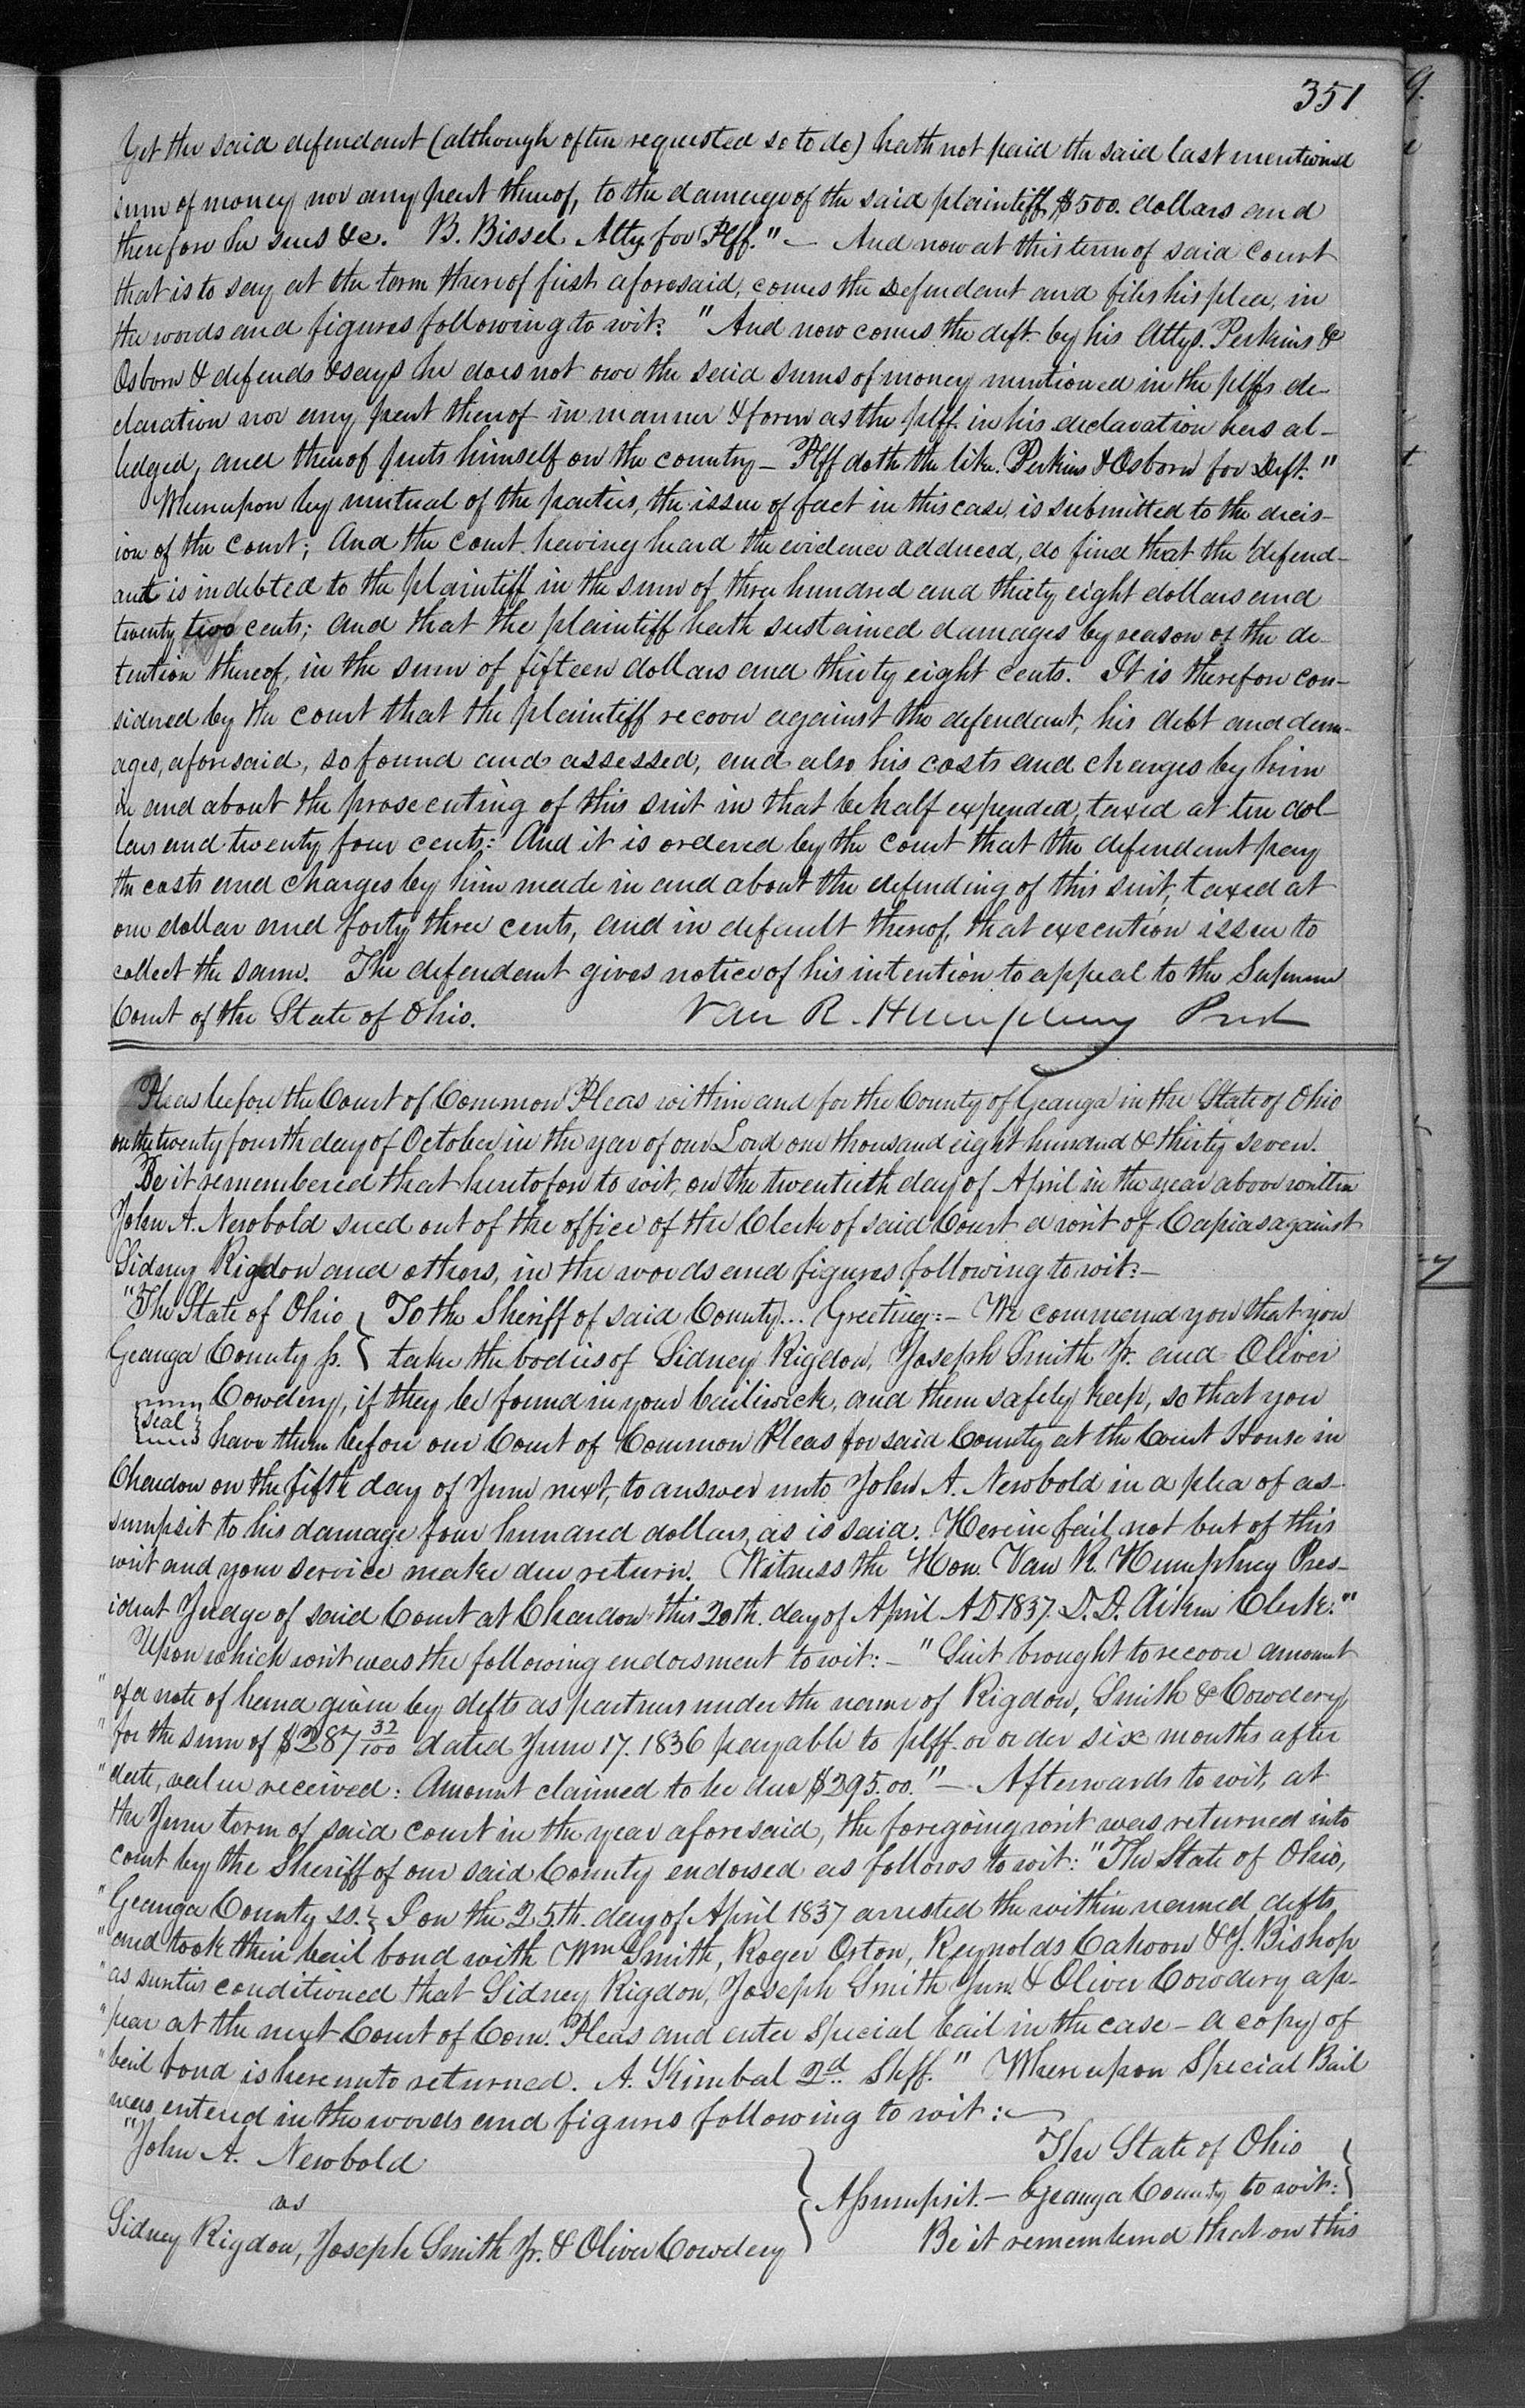 351
Yet the said defendant (although often requested so to do) hath not paid the said last mentioned
sum of money nor any part thereof, to the damage of the said plaintiff $500. dollars and
therefore he sues &c. B. Bissel Atty for Plff." — And now at this term of said court
that is to say at the term thereof first aforesaid, comes the Defendant and files his plea, in
the words and figures following to wit: "And now comes the deft. by his Attys. Perkins &
Osborn & defends & says he does not owe the said sums of money mentioned in the plffs de-
claration nor any part thereof in manner & form as the plff. in his declaration has al-
ledged, and thereof puts himself on the country — Plff doth the like. Perkins & Osborn for Deft."
Whereupon by mutual of the parties, the issue of fact in this case is submitted to the decis-
ion of the court; And the court having heard the evidence adduced, do find that the defend-
ant is indebted to the plaintiff in the sum of three hundred and thirty eight dollars and
twenty two cents; and that the plaintiff hath sustained damages by reason of the de-
tention thereof, in the sum of fifteen dollars and thirty eight cents. It is therefore con-
sidered by the court that the plaintiff recover against the defendant, his debt and dam-
ages, aforesaid, so found and assessed, and also his costs and charges by him
in and about the prosecuting of this suit in that behalf expended, taxed at ten dol-
lars and twenty four cents: And it is ordered by the court that the defendant pay
the costs and charges by him made in and about the defending of this suit, taxed at
one dollar and forty three cents, and in default thereof, that execution issue to
collect the same. The defendant gives notice of his intention to appeal to the Supreme
Court of the State of Ohio. Van R. Humphrey Prest
Pleas before the Court of Common Pleas within and for the County of Geauga in the State of Ohio
on the twenty fourth day of October in the year of our Lord one thousand eight hundred & thirty seven.
Be it remembered that heretofore to wit, on the twentieth day of April in the year above written
John A. Newbold sued out of the office of the Clerk of said Court a writ of Capias against
Sidney Rigdon and others, in the words and figures following to wit: —
"The State of Ohio } To the Sheriff of said County... Greeting: — We command you that you
Geauga County ss. } take the bodies of Sidney Rigdon, Joseph Smith Jr. and Oliver
Cowdery, if they be found in your bailiwick, and them safely keep, so that you
{seal} have them before our Court of Common Pleas for said County at the Court House in
Chardon on the fifth day of June next, to answer unto John A. Newbold in a plea of as-
sumpsit to his damage four hundred dollars, as is said. Herein fail not but of this
writ and your service make due return. Witness the Hon. Van R. Humphrey Pres-
ident Judge of said Court at Chardon this 20th. day of April AD 1837. D. D. Aiken Clerk."
Upon which writ was the following endorsment to wit: — "Suit brought to recover amount
"of a note of hand given by defts as partners under the name of Rigdon, Smith & Cowdery,
"for the sum of $287 32/100 dated June 17. 1836 payable to plff. or order six months after
"date, value received: Amount claimed to be due $295.00." — Afterwards to wit, at
the June term of said court in the year aforesaid, the foregoing writ was returned into
court by the Sheriff of our said County endorsed as follows to wit: "The State of Ohio,
"Geauga County ss. } I on the 25.th. day of April 1837 arrested the within named defts
"and took their bail bond with Wm Smith, Roger Orton, Reynolds Cahoon & J. Bishop
"as sureties conditioned that Sidney Rigdon, Joseph Smith Jun. & Oliver Cowdery ap-
"pear at the next Court of Com. Pleas and enter special bail in the case — a copy of
"bail bond is hereunto returned. A. Kimbal 2d. Shff." Whereupon Special Bail
was entered in the words and figures following to wit: —
"John A. Newbold } The State of Ohio }
vs } Assumpsit. — Geauga County to wit: }
Sidney Rigdon, Joseph Smith Jr. & Oliver Cowdery } Be it remembered that on this